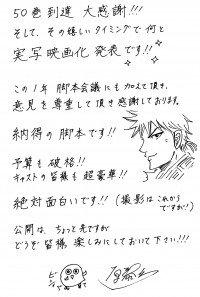 50巻到達 大感謝!!!
そして、その嬉しいタイミングで何と
実写映画化 発表です!!
この1年 脚本会議にも加えて頂き、
意見を尊重して頂き感謝しております。
納得の脚本です!!
予算も破格!!
キャストの皆様も超豪華!!
絶対面白いです!! (撮影はこれから
ですが!)
公開は、ちょっと先ですが
どうぞ皆様 楽しみにしておいて下さい!!!